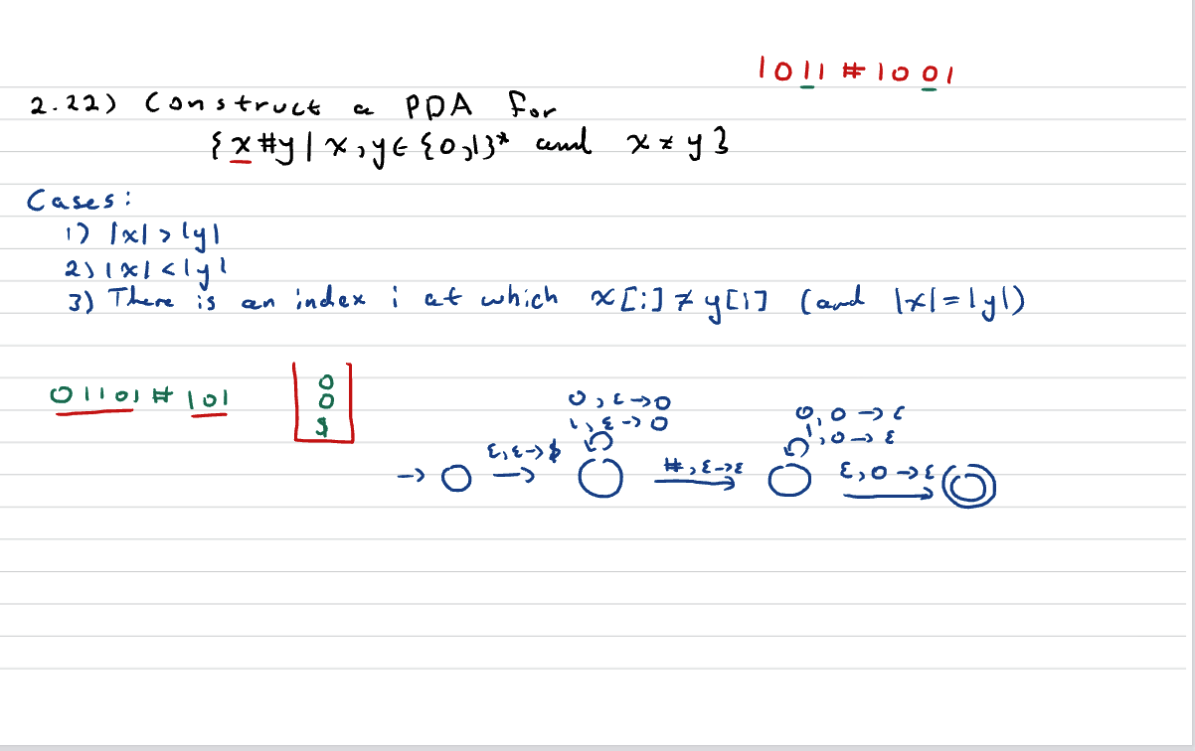 1011#1001
2.22) Construct a PDA for
{x#y | x,y∈{0,1}* and x≠y}
Cases:
1) |x|>|y|
2) |x|<|y|
3) There is an index i at which x[i]≠y[i] (and |x|=|y|)
01101#101
0
0
$
ε,ε→$
0,ε→0
1,ε→0
#,ε→ε
0,0→ε
1,0→ε
ε,0→ε